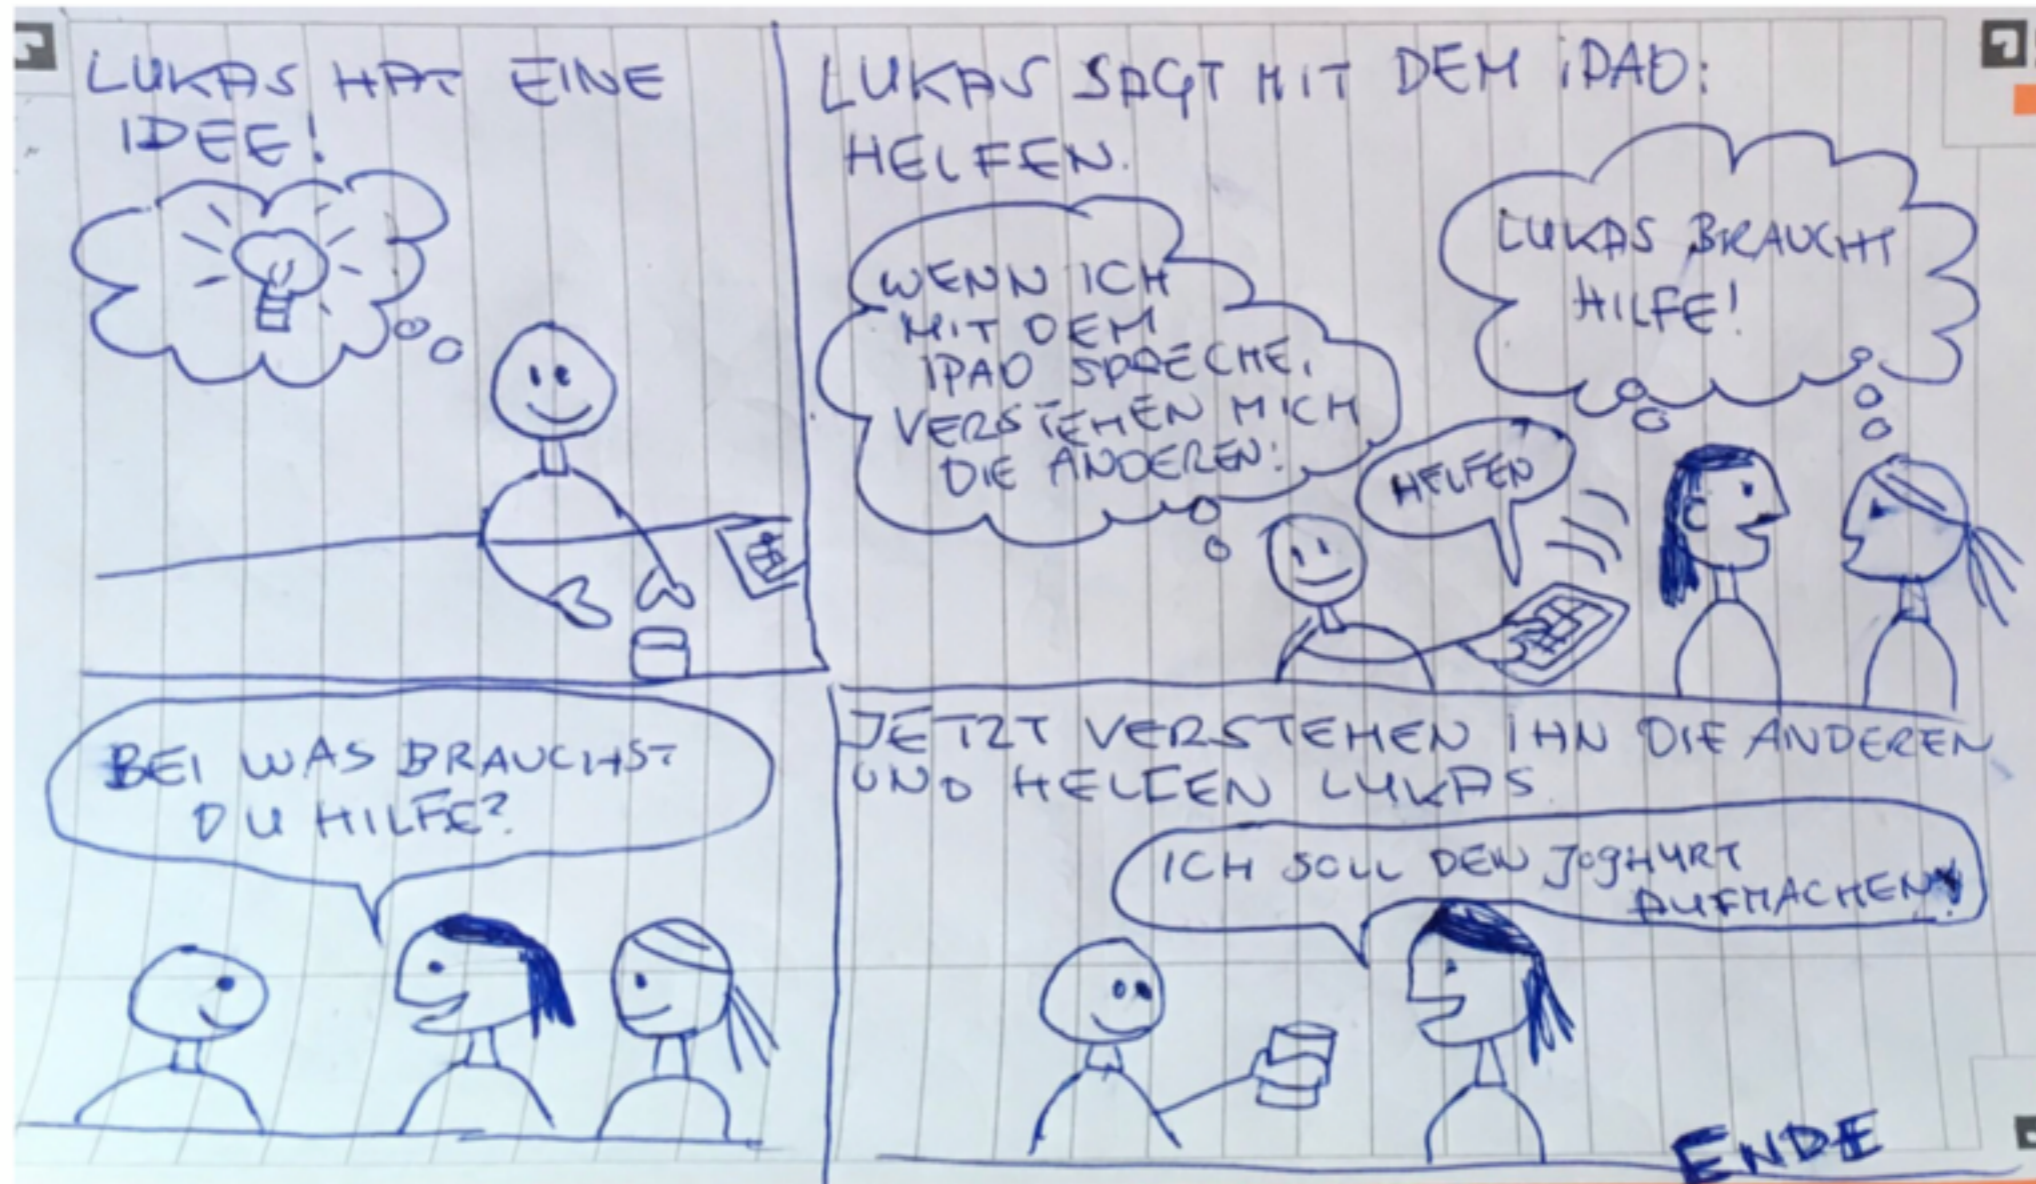 LUKAS HAT EINE
IDEE!
LUKAS SAGT MIT DEM iPAD:
HELFEN.
WENN ICH
MIT DEM
iPAD SPRECHE,
VERSTEHEN MICH
DIE ANDEREN!
HELFEN
LUKAS BRAUCHT
HILFE!
BEI WAS BRAUCHST
DU HILFE?
JETZT VERSTEHEN IHN DIE ANDEREN
UND HELFEN LUKAS
ICH SOLL DEN JOGHURT
AUFMACHEN!
ENDE